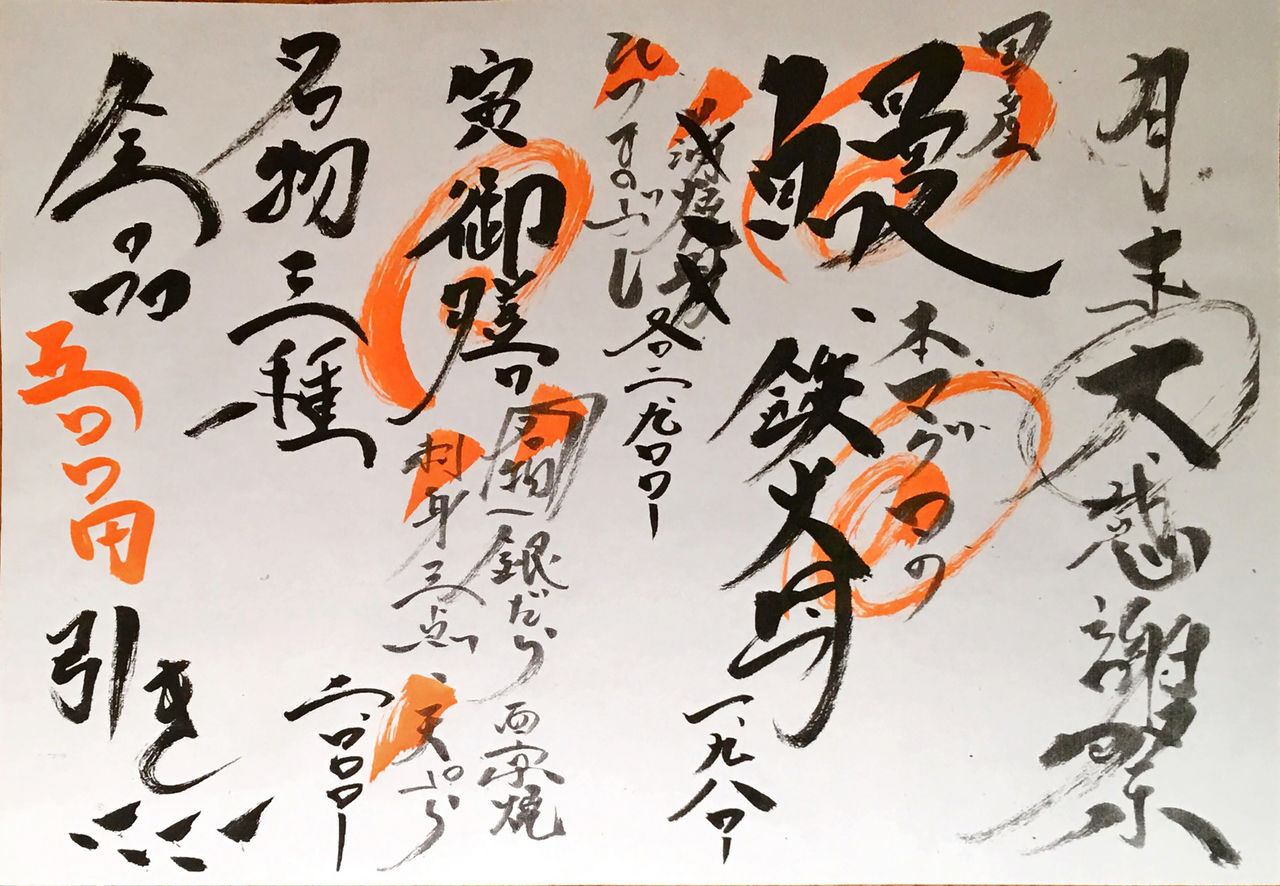 月末大感謝祭
国産
鰻
本マグロの
鉄火丼
一、九八〇ー
ひつまぶし
各二、九〇〇ー
御膳
名物
銀だら西京焼
刺身三点、天ぷら
二、〇〇〇ー
名物三種
全品五〇〇円引き!!!